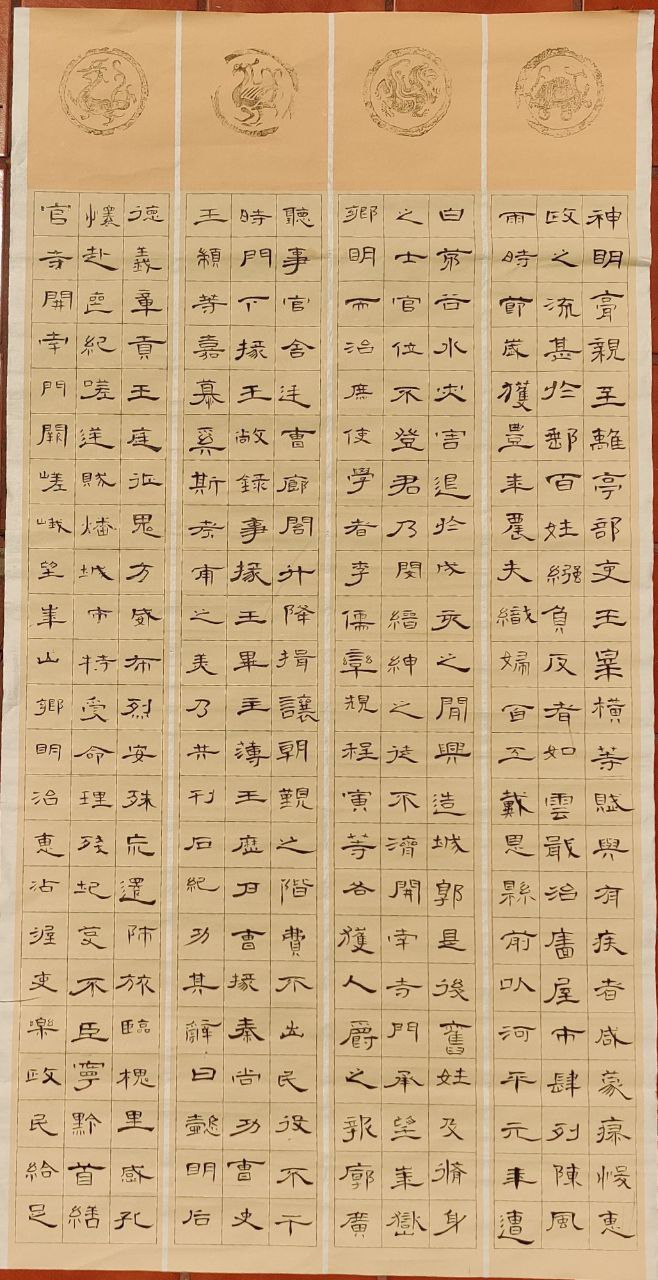 神明膏親至離亭部吏王睪橫等賦與有疾者咸蒙瘳悛惠
政之流甚於郵百姓繈負反者如雲戢治廧屋市肆列陳風
雨時節歲獲豐年農夫織婦百工戴恩縣前以河平元年遭
白茅谷水灾害退於戌亥之間興造城郭是後舊姓及脩身
之士官位不登君乃閔縉紳之徒不濟開南寺門承望華嶽
鄉明而治庶使學者李儒欒規程寅等各獲人爵之報廓廣
聽事官舍廷曹廊閣升降揖讓朝覲之階費不出民役不干
時門下掾王敞録事掾王畢主薄王歷戶曹掾秦尚功曹史
王顓等嘉慕奚斯考甫之美乃共刊石紀功其辭曰懿明后
德義章貢王庭征鬼方威布烈安殊荒還師旅臨槐里感孔
懷赴喪紀嗟逆賊燔城市特受命理殘圮芟不臣寧黔首繕
官寺開南門闕嵯峨望華山鄉明治惠沾渥吏樂政民給足